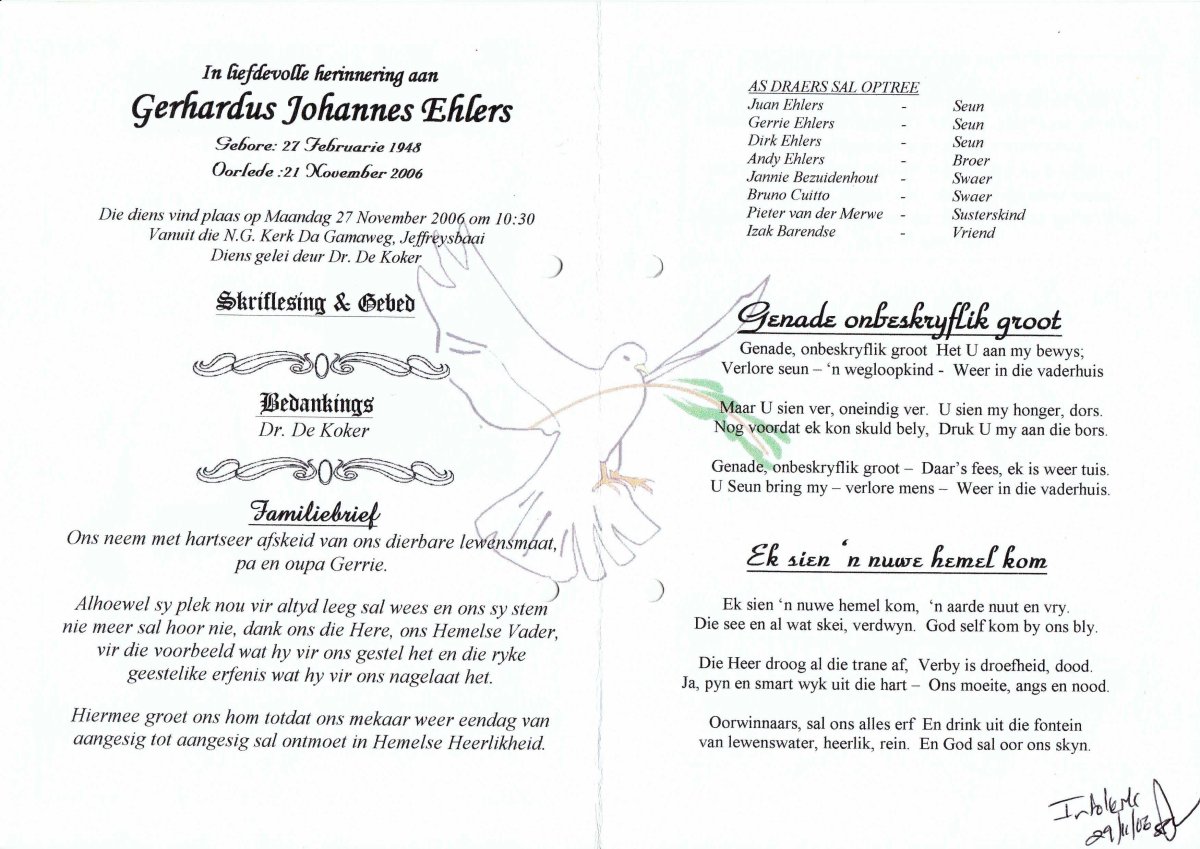 In liefdevolle herinnering aan
Gerhardus Johannes Ehlers
Gebore: 27 Februarie 1948
Oorlede :21 November 2006
Die diens vind plaas op Maandag 27 November 2006 om 10:30
Vanuit die N.G. Kerk Da Gamaweg, Jeffreysbaai
Diens gelei deur Dr. De Koker
Skriflesing & Gebed
Bedankings
Dr. De Koker
Familiebrief
Ons neem met hartseer afskeid van ons dierbare lewensmaat,
pa en oupa Gerrie.
Alhoewel sy plek nou vir altyd leeg sal wees en ons sy stem
nie meer sal hoor nie, dank ons die Here, ons Hemelse Vader,
vir die voorbeeld wat hy vir ons gestel het en die ryke
geestelike erfenis wat hy vir ons nagelaat het.
Hiermee groet ons hom totdat ons mekaar weer eendag van
aangesig tot aangesig sal ontmoet in Hemelse Heerlikheid.
AS DRAERS SAL OPTREE
Juan Ehlers - Seun
Gerrie Ehlers - Seun
Dirk Ehlers - Seun
Andy Ehlers - Broer
Jannie Bezuidenhout - Swaer
Bruno Cuitto - Swaer
Pieter van der Merwe - Susterskind
Izak Barendse - Vriend
Genade onbeskryflik groot
Genade, onbeskryflik groot Het U aan my bewys;
Verlore seun – ‘n wegloopkind - Weer in die vaderhuis
Maar U sien ver, oneindig ver. U sien my honger, dors.
Nog voordat ek kon skuld bely, Druk U my aan die bors.
Genade, onbeskryflik groot – Daar’s fees, ek is weer tuis.
U Seun bring my – verlore mens – Weer in die vaderhuis.
Ek sien ‘n nuwe hemel kom
Ek sien ‘n nuwe hemel kom, ‘n aarde nuut en vry.
Die see en al wat skei, verdwyn. God self kom by ons bly.
Die Heer droog al die trane af, Verby is droefheid, dood.
Ja, pyn en smart wyk uit die hart – Ons moeite, angs en nood.
Oorwinnaars, sal ons alles erf En drink uit die fontein
van lewenswater, heerlik, rein. En God sal oor ons skyn.
29/11/06